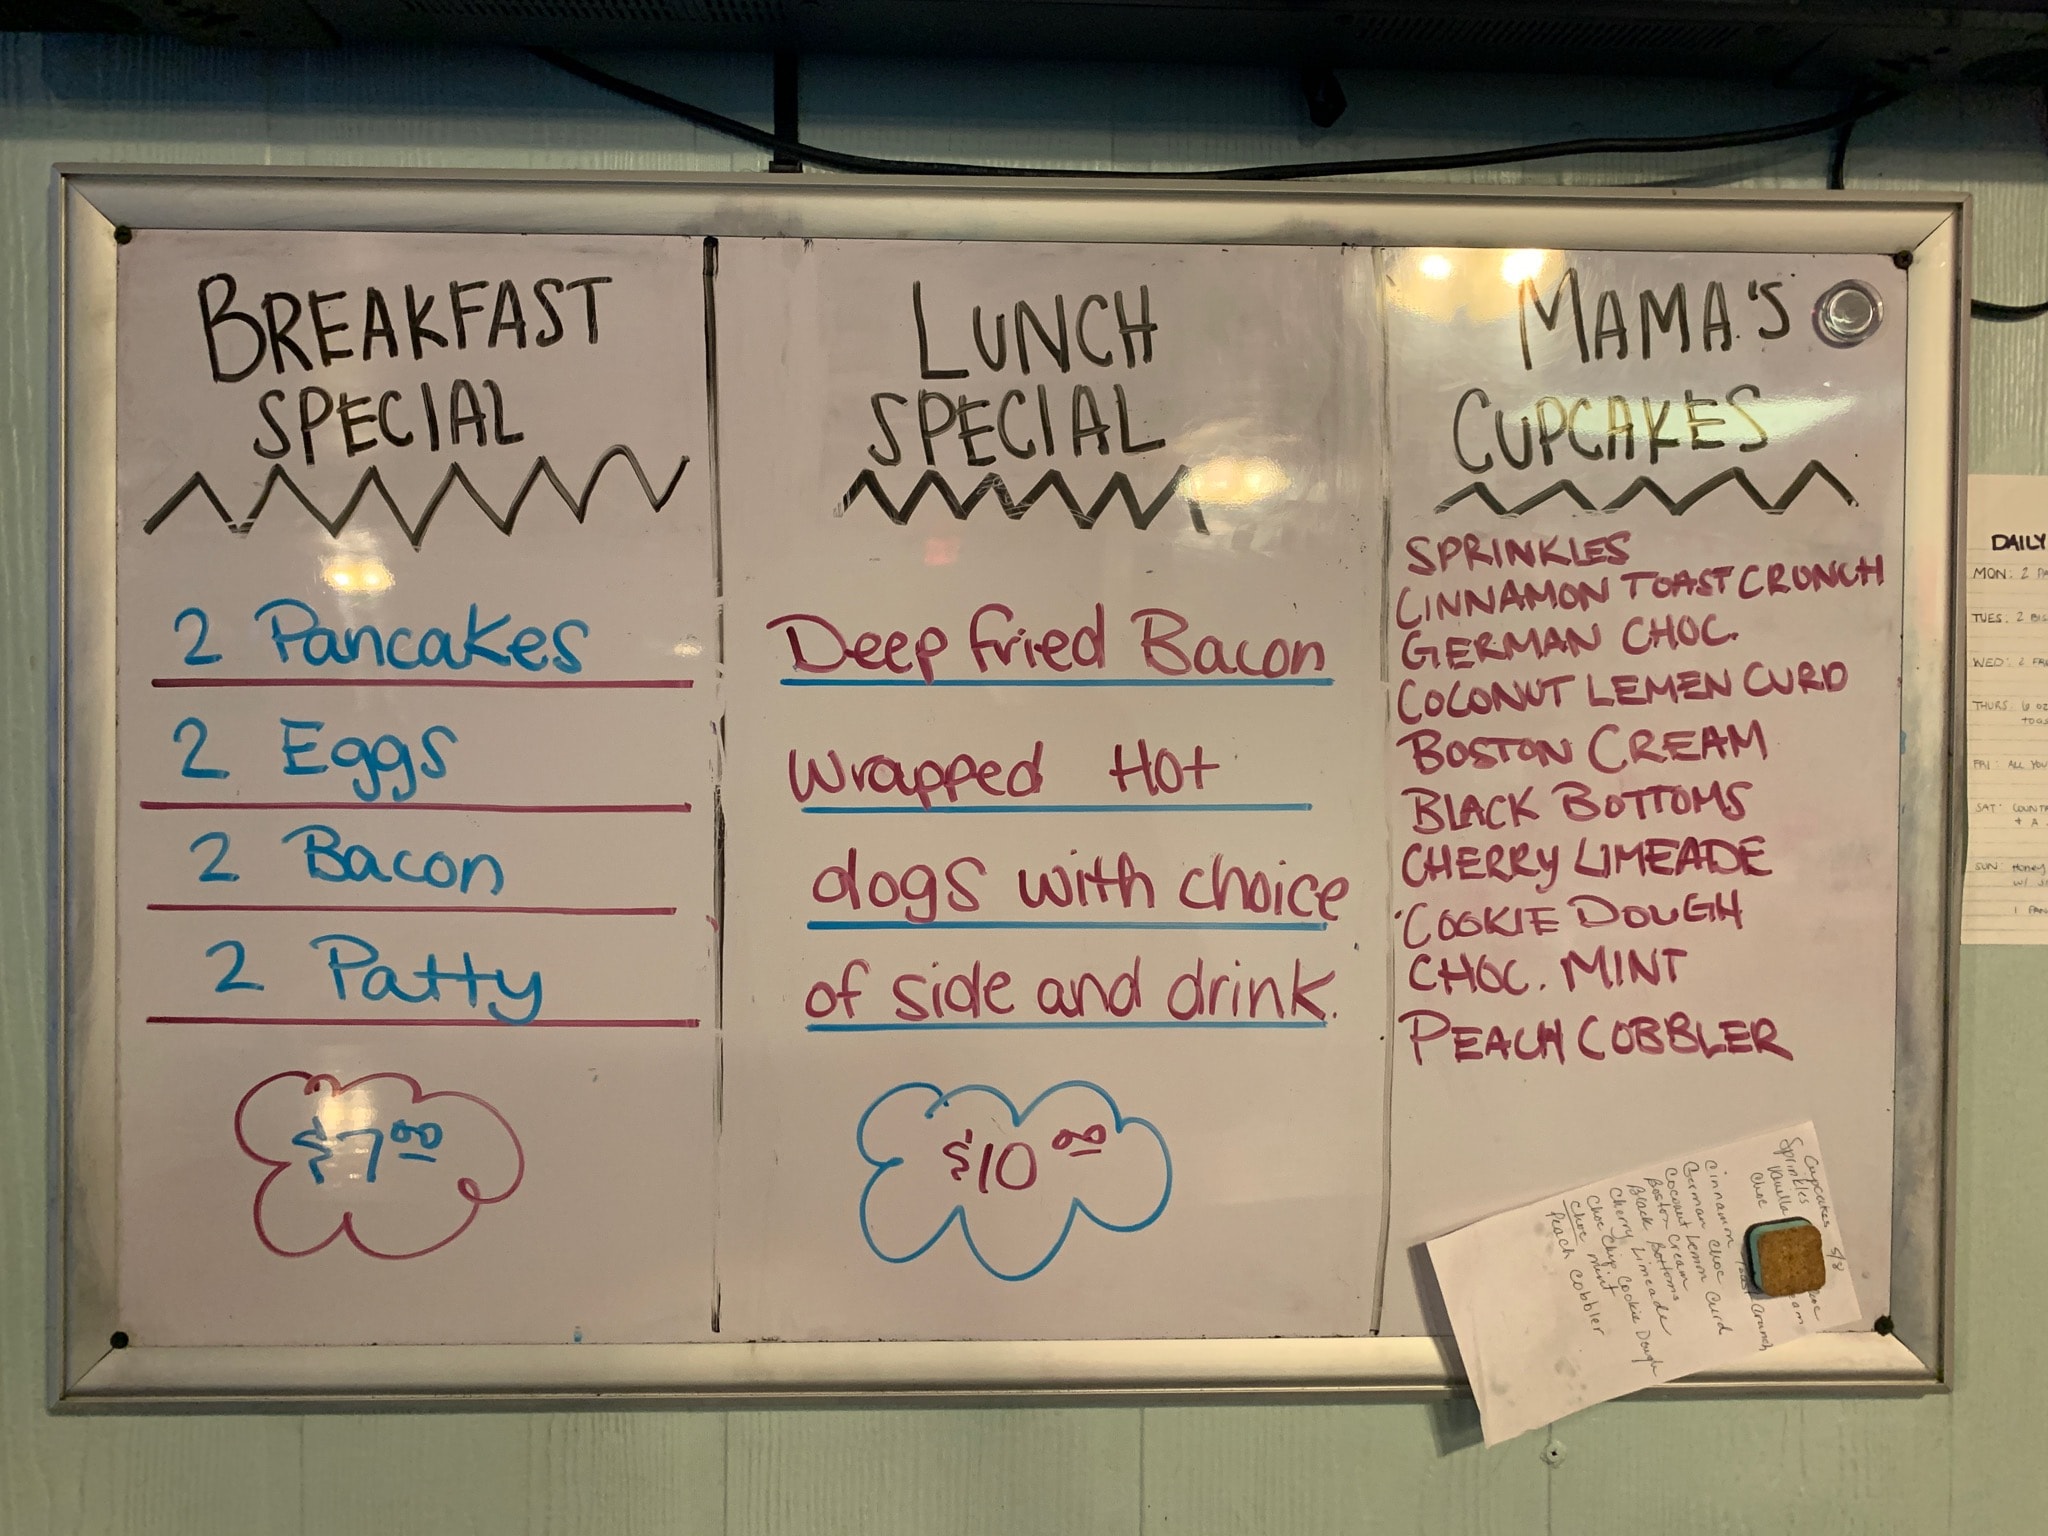 BREAKFAST
SPECIAL
2 Pancakes
2 Eggs
2 Bacon
2 Patty
$7.00
LUNCH
SPECIAL
Deep fried Bacon
Wrapped Hot
dogs with choice
of side and drink.
$10.00
MAMA'S
CUPCAKES
SPRINKLES
CINNAMON TOAST CRUNCH
GERMAN CHOC.
COCONUT LEMEN CURD
BOSTON CREAM
BLACK BOTTOMS
CHERRY LIMEADE
COOKIE DOUGH
CHOC. MINT
PEACH COBBLER
Cupcakes 5/8
Sprinkles
Vanilla
Choc
Cinnamon Toast Crunch
German Choc
Coconut Lemon Curd
Boston Cream
Black Bottoms
Cherry Limeade
Choc Chip Cookie Dough
Choc mint
Peach Cobbler
DAILY
MON: 2
TUES: 2
WED: 2
THURS: 6 OZ
FRI: ALL YOU
SAT:
+ A
SUN: Honey
w/
1